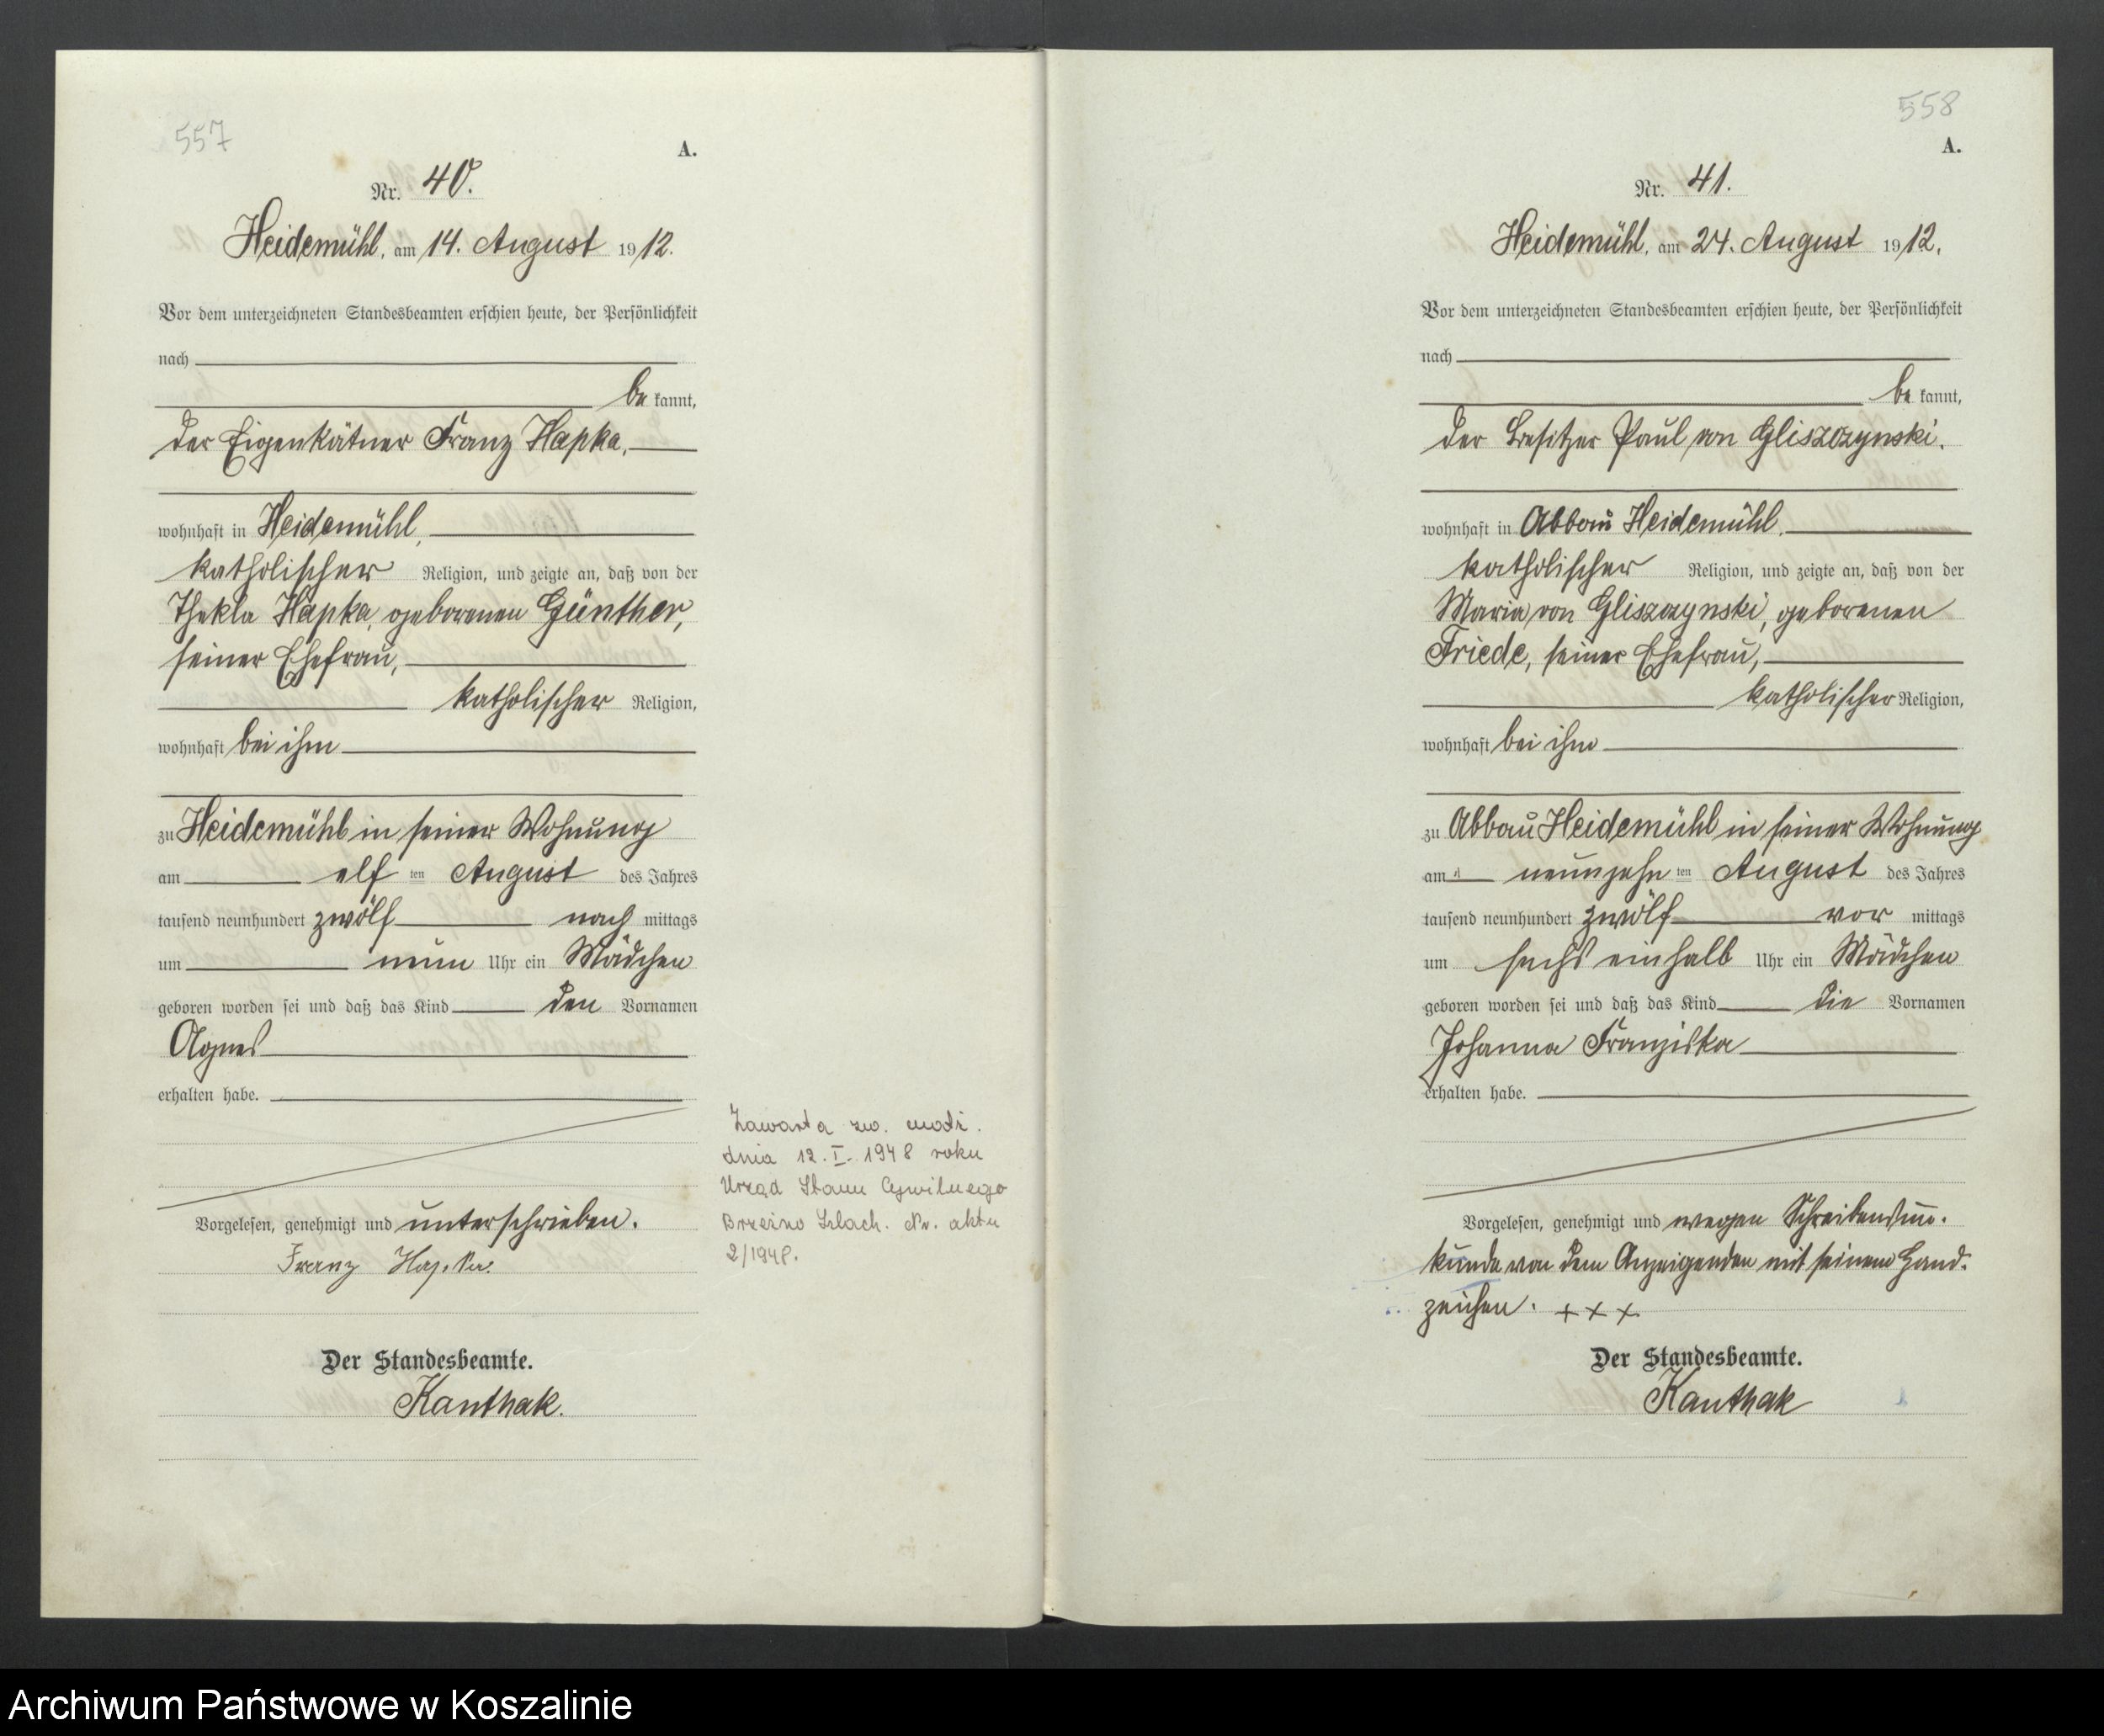 557
A.
Nr. 40.
Heidemühl, am 14. August 1912.
Vor dem unterzeichneten Standesbeamten erschien heute, der Persönlichkeit
nach
be kannt,
der Eigenkätner Franz Hapka,
wohnhaft in Heidemühl,
katholischer Religion, und zeigte an, daß von der
Thekla Hapka, geborenen Günther,
seiner Ehefrau,
katholischer Religion,
wohnhaft bei ihm
zu Heidemühl in seiner Wohnung
am elf ten August des Jahres
tausend neunhundert zwölf nach mittags
um neun Uhr ein Mädchen
geboren worden sei und daß das Kind den Vornamen
Agnes
erhalten habe.
Vorgelesen, genehmigt und unterschrieben.
Franz Hapka.
Der Standesbeamte.
Kanthak.
Zawarta zw. małż.
dnia 12. I. 1948 roku
Urząd Stanu Cywilnego
Brzeźno Szlach. Nr. aktu
2/1948.
558
A.
Nr. 41.
Heidemühl, am 24. August 1912.
Vor dem unterzeichneten Standesbeamten erschien heute, der Persönlichkeit
nach
be kannt,
der Besitzer Paul von Gliszczynski.
wohnhaft in Abbau Heidemühl.
katholischer Religion, und zeigte an, daß von der
Maria von Gliszczynski, geborenen
Friede, seiner Ehefrau,
katholischer Religion,
wohnhaft bei ihm
zu Abbau Heidemühl in seiner Wohnung
am neunzehn ten August des Jahres
tausend neunhundert zwölf vor mittags
um sechs einhalb Uhr ein Mädchen
geboren worden sei und daß das Kind die Vornamen
Johanna Franziska
erhalten habe.
Vorgelesen, genehmigt und wegen Schreibensun-
kunde von dem Anzeigenden mit seinem Hand-
zeichen. + x x
Der Standesbeamte.
Kanthak
Archiwum Państwowe w Koszalinie